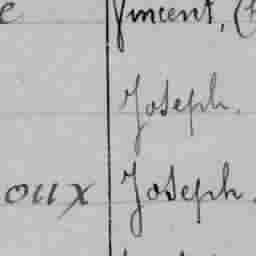 Vincent, (
Joseph.
oux Joseph.